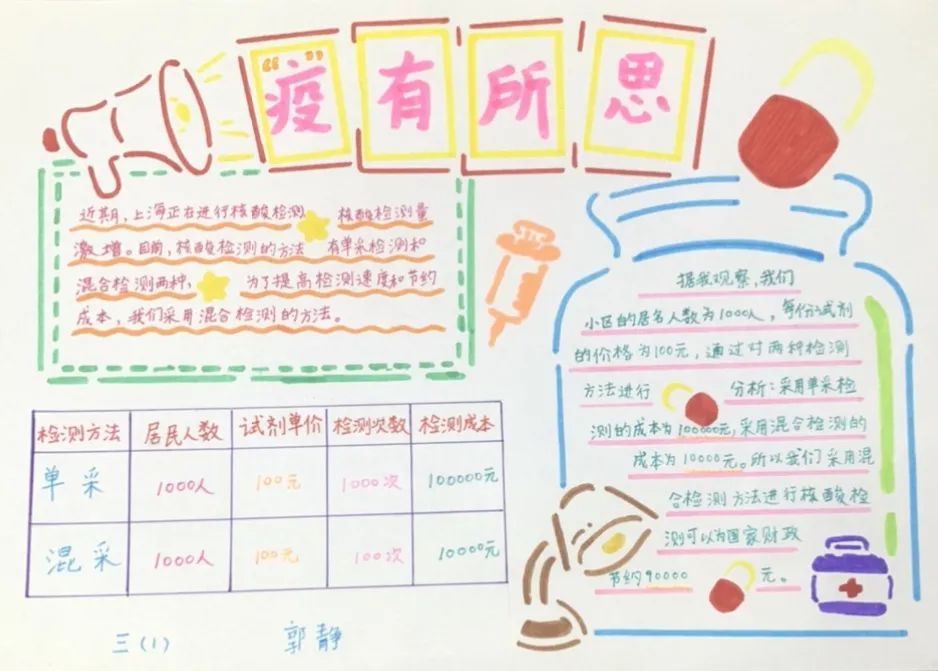 “疫”有所思
近期，上海正在进行核酸检测. 核酸检测量
激增。目前，核酸检测的方法 有单采检测和
混合检测两种， 为了提高检测速度和节约
成本，我们采用混合检测的方法。
据我观察，我们
小区的居名人数为1000人，每份试剂
的价格为100元，通过对两种检测
方法进行 分析：采用单采检
测的成本为100000元，采用混合检测的
成本为10000元。所以我们采用混
合检测方法进行核酸检
测可以为国家财政
节约90000 元。
检测方法 居民人数 试剂单价 检测次数 检测成本
单采 1000人 100元 1000次 100000元
混采 1000人 100元 100次 10000元
三（1） 郭静